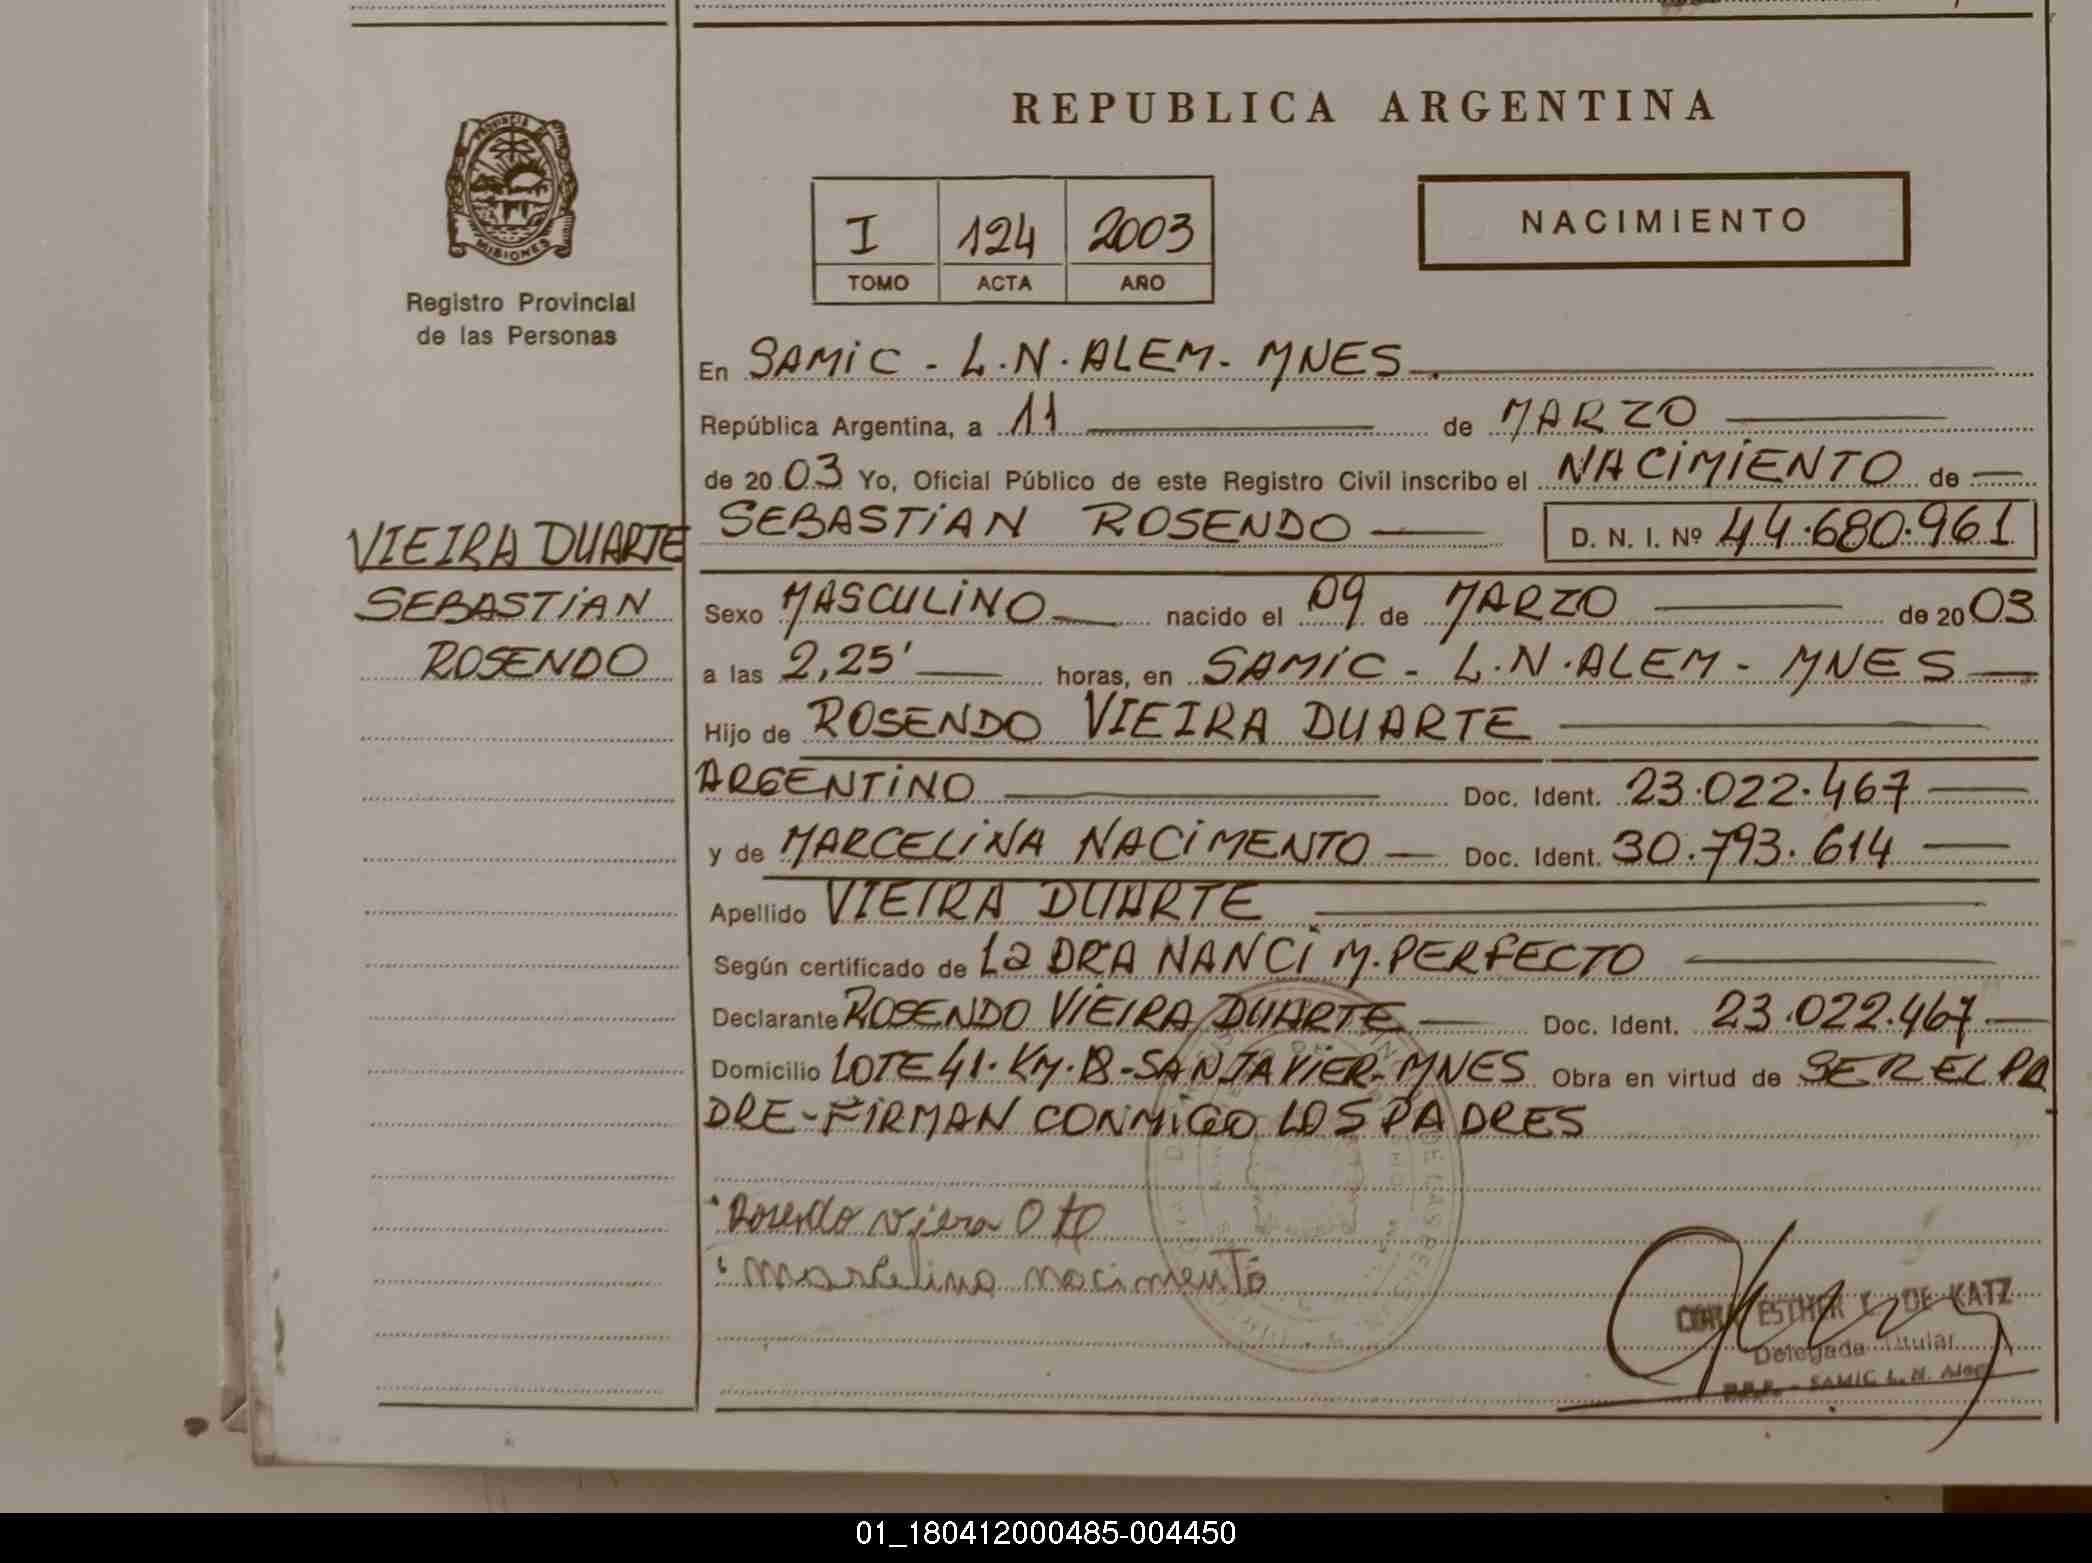 REPUBLICA ARGENTINA
PROVINCIA DE
MISIONES
Registro Provincial
de las Personas
I 124 2003
TOMO ACTA AÑO
NACIMIENTO
En SAMIC - L.N. ALEM - MNES
República Argentina, a 11 de MARZO
de 2003 Yo, Oficial Público de este Registro Civil inscribo el NACIMIENTO de
VIEIRA DUARTE
SEBASTIAN
ROSENDO
SEBASTIAN ROSENDO D. N. I. Nº 44.680.961
Sexo MASCULINO nacido el 09 de MARZO de 2003
a las 2,25' horas, en SAMIC - L.N. ALEM - MNES
Hijo de ROSENDO VIEIRA DUARTE
ARGENTINO Doc. Ident. 23.022.467
y de MARCELINA NACIMENTO Doc. Ident. 30.793.614
Apellido VIEIRA DUARTE
Según certificado de La DRA NANCI M. PERFECTO
Declarante ROSENDO VIEIRA DUARTE Doc. Ident. 23.022.467
Domicilio LOTE 41. KM. 18 - SAN JAVIER - MNES Obra en virtud de SER EL PA
DRE - FIRMAN CONMIGO LOS PADRES
Rosendo viera
marcelina nacimento
ESTHER DE KATZ
Delegada Titular
SAMIC L. N. Alem
01_180412000485-004450